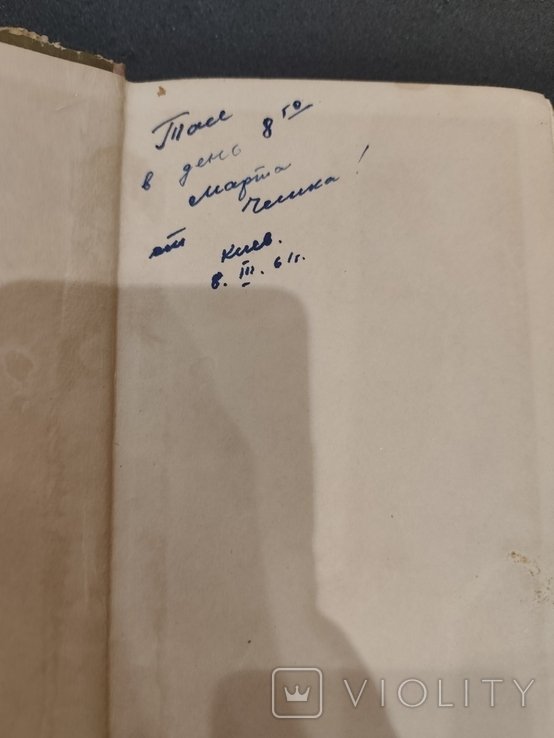 Тасе
в день 8го
марта
от Челика!
Киев.
8. III. 61г.
VIOLITY